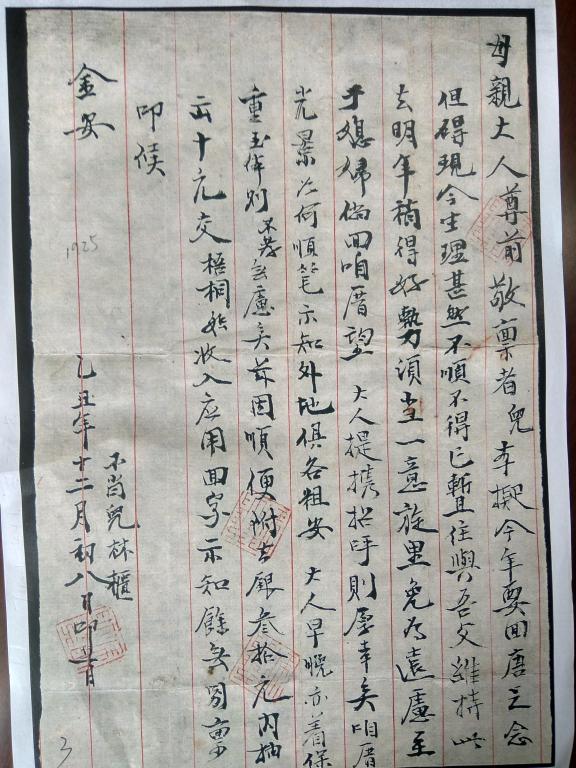 母親大人尊前敬稟者兒本擬今年要回唐之念
但碍現今生理甚然不順不得已暫且住與吾父維持此
去明年稍得好勢須當一意旋里免為遠慮至
于媳婦倘回咱厝望 大人提携招呼則愿幸矣咱厝
光景如何順笔示知外地俱各粗安 大人早晚亦着保
重玉体则不孝無慮矣茲因順便附去銀叁拾元内抽
出十元交梧桐姈收入应用回字示知餘無别稟
叩候
金安
1925
不肖兒林櫃
乙丑年十二月初八日叩首
3